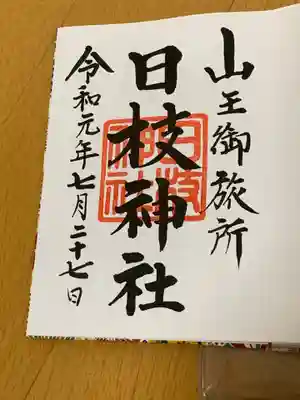 山王御旅所
日枝神社
令和元年七月二十七日
日枝神社